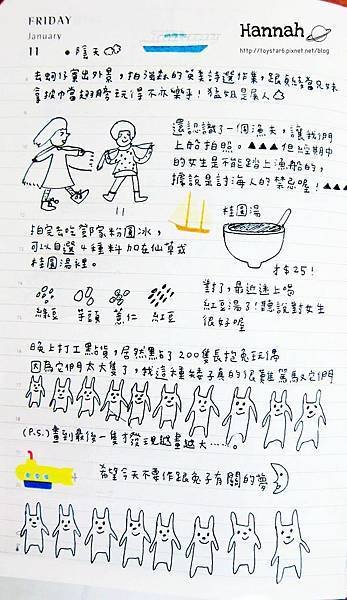 FRIDAY
January
11 • 陰天
Hannah
http://toystar6.pixnet.net/blog
去蚵仔寮出外景，拍海森的英美詩選作業，跟真綾當兄妹
拿抄巾當翅膀玩得不亦樂乎！猛姐是屠人
還認識了一個漁夫，讓我們
上船拍照。▲▲▲但經期中
的女生是不能踏上漁船的，
據說是討海人的禁忌喔！▲▲
11
桂圓湯
拍完去吃鄧家粉圓冰，
可以自選4種料加在仙草或
桂圓湯裡。
才$25！
綠豆 芋頭 薏仁 紅豆
對了，最近迷上喝
紅豆湯了！聽說對女生
很好喔
晚上打工點貨，居然點了200隻長抱兔玩偶
因為它們太大隻了，我這種矮子真的很難駕馭它們
(P.S.)畫到最後一隻才發現越畫越大……。
希望今天不要作跟兔子有關的夢